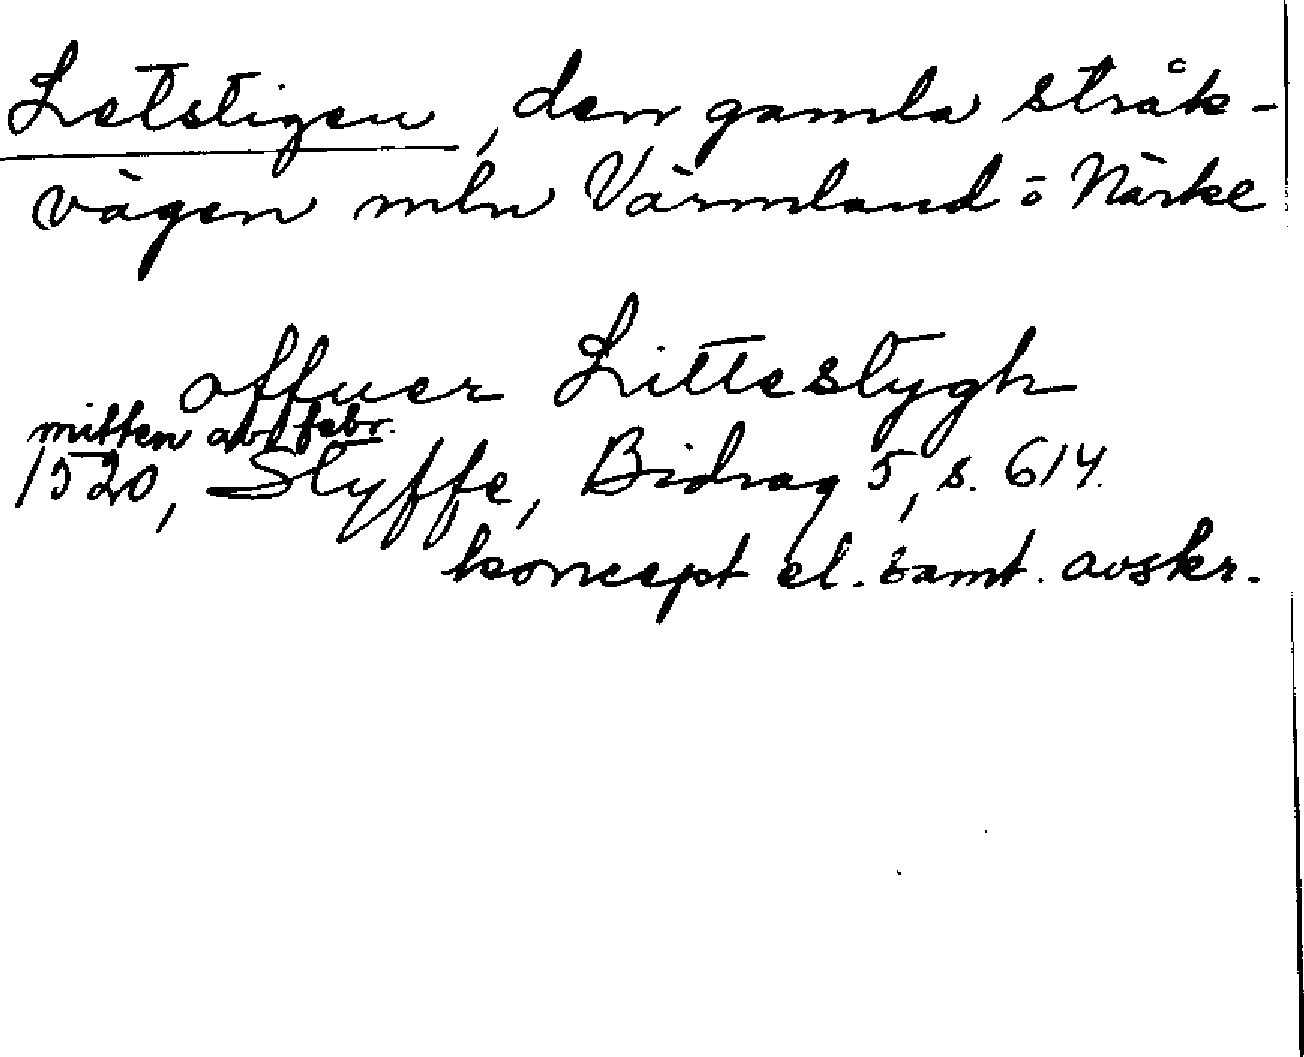 Letstigen, den gamla stråk-
vägen mln Värmland o Närke
offuer Littestygh
mitten av febr.
1520, Styffe, Bidrag 5, s. 614.
koncept el. samt. avskr.